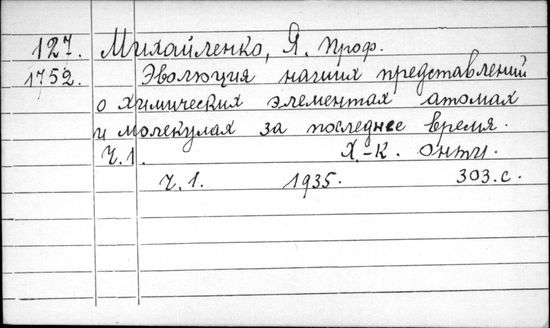 127. Михайленко, Я. Проф.
1752. Эволюция наших представлений
о химических элементах атомах
и молекулах за последнее время.
Ч.1. Х.-К. ОНТИ.
Ч.1. 1935. 303.с.